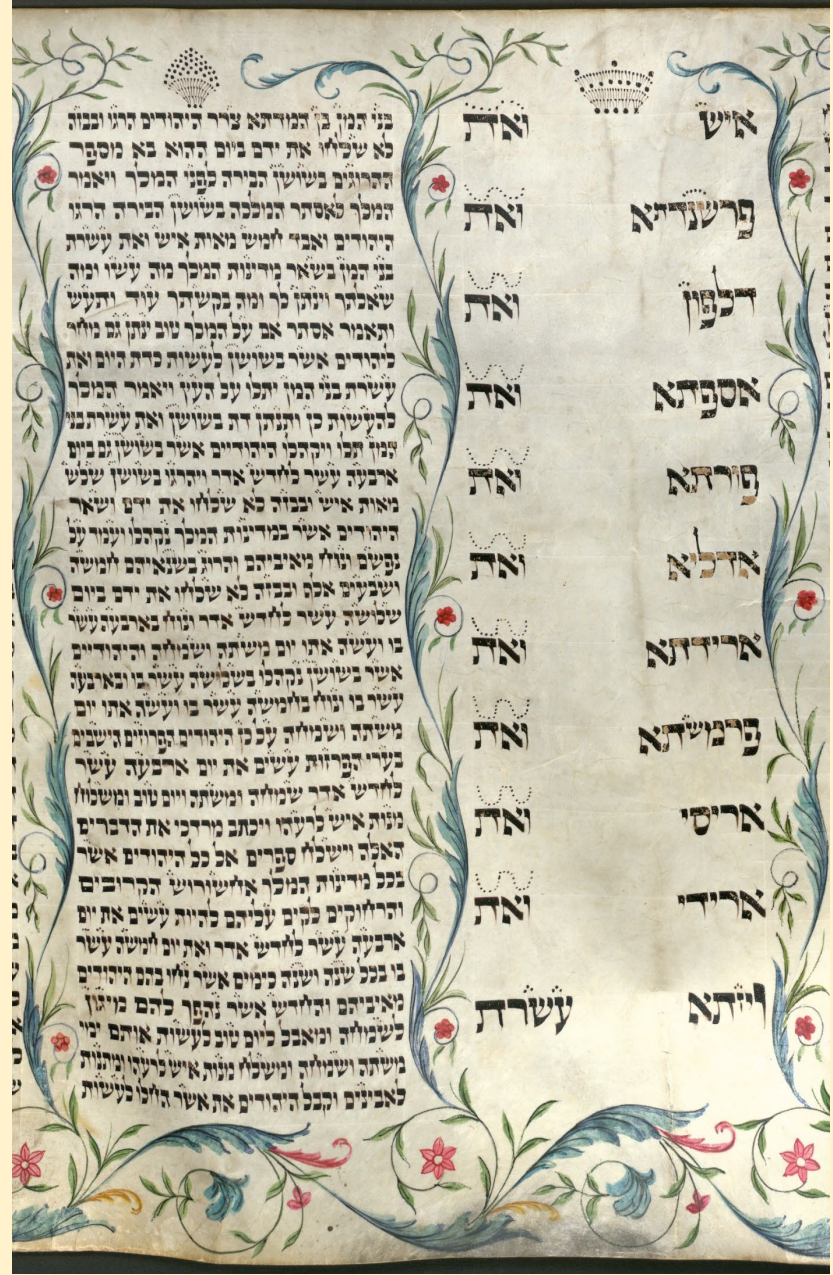 איש ואת
פרשנדתא ואת
דלפון ואת
אספתא ואת
פורתא ואת
אדליא ואת
ארידתא ואת
פרמשתא ואת
אריסי ואת
ארידי ואת
ויזתא עשרת
בני המן בן המדתא צרר היהודים הרגו ובבזה
לא שלחו את ידם ביום ההוא בא מספר
ההרוגים בשושן הבירה לפני המלך ויאמר
המלך לאסתר המלכה בשושן הבירה הרגו
היהודים ואבד חמש מאות איש ואת עשרת
בני המן בשאר מדינות המלך מה עשו ומה
שאלתך וינתן לך ומה בקשתך עוד ותעש
ותאמר אסתר אם על המלך טוב ינתן גם מחר
ליהודים אשר בשושן לעשות כדת היום ואת
עשרת בני המן יתלו על העץ ויאמר המלך
להעשות כן ותנתן דת בשושן ואת עשרת בני
המן תלו ויקהלו היהודיים אשר בשושן גם ביום
ארבעה עשר לחדש אדר ויהרגו בשושן שלש
מאות איש ובבזה לא שלחו את ידם ושאר
היהודים אשר במדינות המלך נקהלו ועמד על
נפשם ונוח מאיביהם והרוג בשנאיהם חמשה
ושבעים אלף ובבזה לא שלחו את ידם ביום
שלושה עשר לחדש אדר ונוח בארבעה עשר
בו ועשה אתו יום משתה ושמחה והיהודיים
אשר בשושן נקהלו בשלושה עשר בו ובארבעה
עשר בו ונוח בחמשה עשר בו ועשה אתו יום
משתה ושמחה על כן היהודים הפרוזים הישבים
בערי הפרזות עשים את יום ארבעה עשר
לחדש אדר שמחה ומשתה ויום טוב ומשלוח
מנות איש לרעהו ויכתב מרדכי את הדברים
האלה וישלח ספרים אל כל היהודים אשר
בכל מדינות המלך אחשורוש הקרובים
והרחוקים לקים עליהם להיות עשים את יום
ארבעה עשר לחדש אדר ואת יום חמשה עשר
בו בכל שנה ושנה כימים אשר נחו בהם היהודים
מאיביהם והחדש אשר נהפך להם מיגון
לשמחה ומאבל ליום טוב לעשות אותם ימי
משתה ושמחה ומשלח מנות איש לרעהו ומתנות
לאבינים וקבל היהודים את אשר החלו לעשות